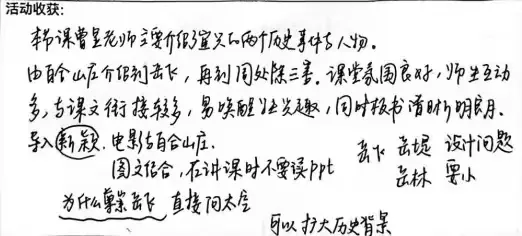 活动收获:
本节课曾呈老师主要介绍了宜兴的两个历史事件与人物。
由百合山庄介绍到岳飞,再到周处除三害。课堂氛围良好,师生互动
多,与课文衔接较多,易唤醒生兴趣,同时板书清晰明朗。
导入新颖.电影与百合山庄.
图文结合,在讲课时不要读ppt
岳飞 岳堤 设计问题
岳林 要小
为什么 岳飞 直接问太空
可以扩大历史背景